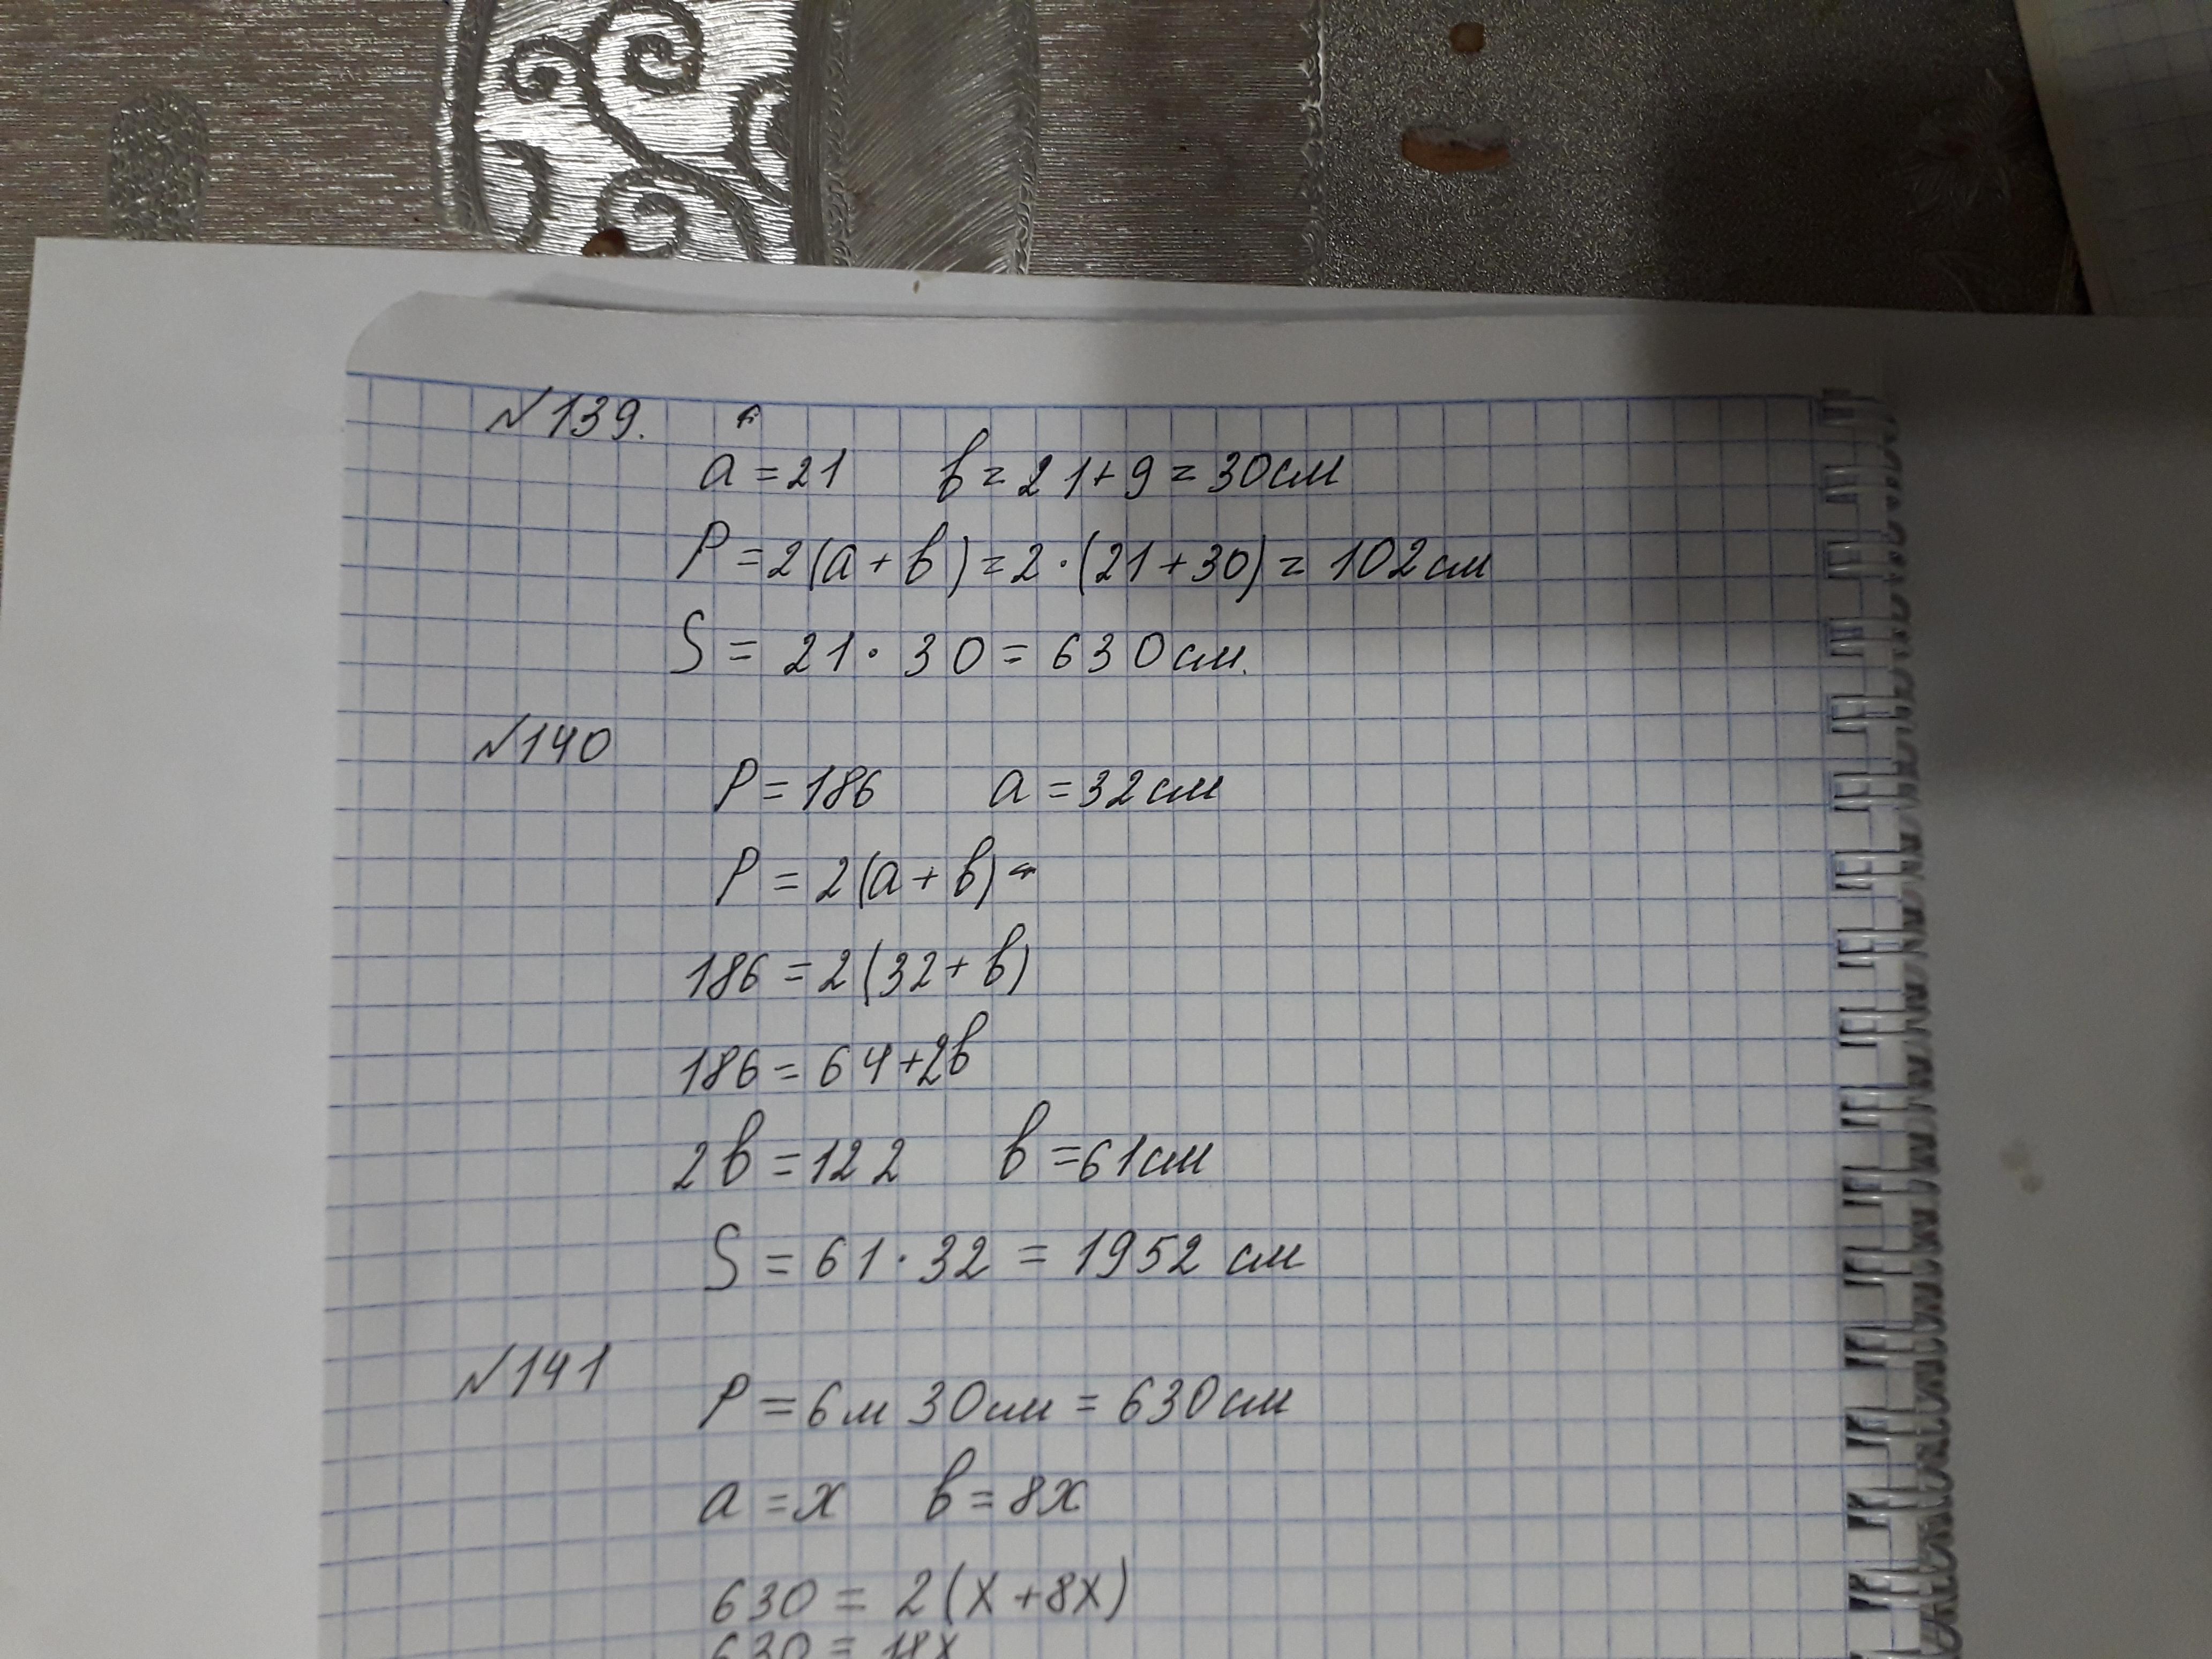 №139.
a = 21 b = 21 + 9 = 30см
P = 2(a + b) = 2 · (21 + 30) = 102см
S = 21 · 30 = 630см.
№140
P = 186 a = 32см
P = 2(a + b) =
186 = 2(32 + b)
186 = 64 + 2b
2b = 122 b = 61см
S = 61 · 32 = 1952 см
№141
P = 6м 30см = 630см
a = x b = 8x
630 = 2(x + 8x)
630 = 18x